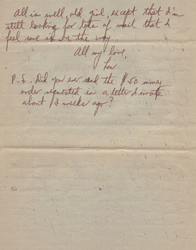 All is well, old girl, except that I'm
still looking for lots of mail that I
feel sure is on the way
All my love,
P.S. Did you ever send the $50 money
order requested in a letter I wrote
about 13 weeks ago?